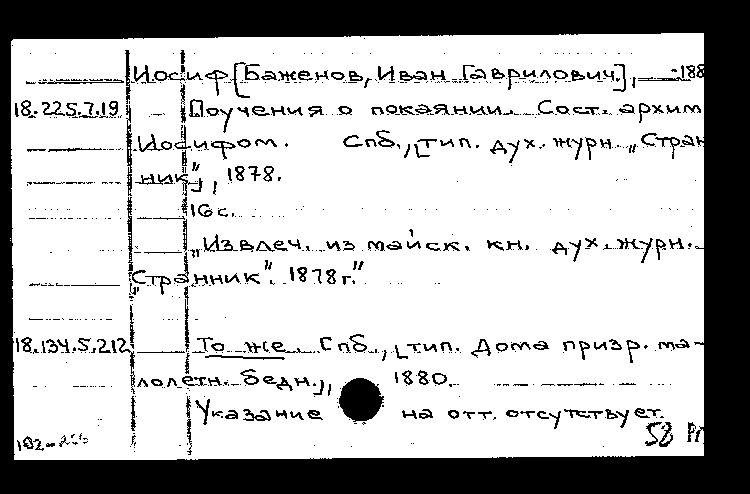 Иосиф [Баженов, Иван Гаврилович], -188
18.225.7.19 Поучения о покаянии. Сост. архим.
Иосифом. Спб., [тип. дух. журн. „Стран-
ник"], 1878.
16 с.
„Извлеч. из майск. кн. дух. журн.
„Странник". 1878 г."
18.134.5.212 То же. Спб., [тип. Дома призр. ма-
лолетн. бедн.], 1880.
Указание на отт. отсутствует.
58 Рп